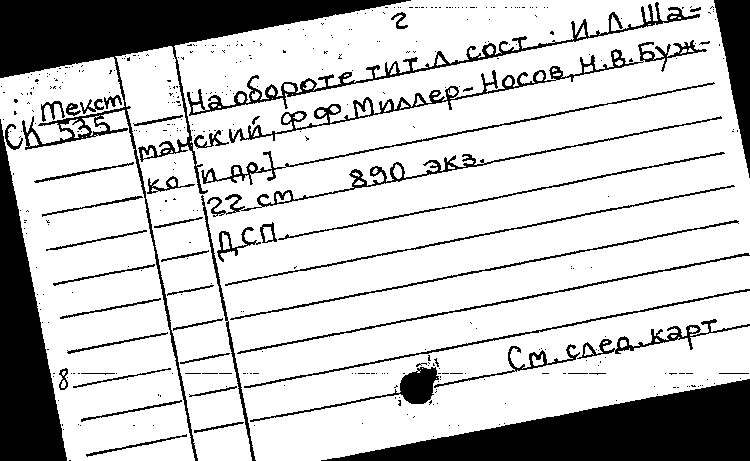 2
Текст
СК 535
На обороте тит.л. сост.: И.Л. Ша=
танский, Ф.Ф. Миллер-Носов, Н.В. Буж-
ко [и др.].
22 см. 890 экз.
ДСП.
См. след. карт
8